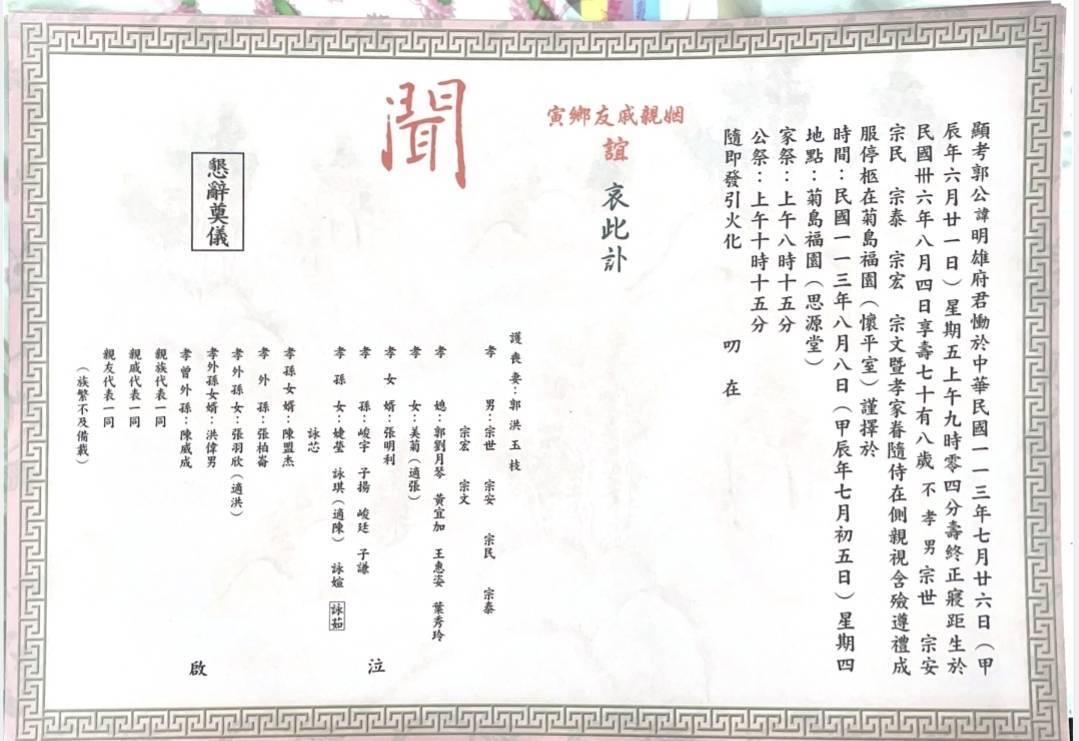 顯考郭公諱明雄府君慟於中華民國一一三年七月廿六日（甲
辰年六月廿一日）星期五上午九時零四分壽終正寢距生於
民國卅六年八月四日享壽七十有八歲 不孝男宗世 宗安
宗民 宗泰 宗宏 宗文暨孝家眷隨侍在側親視含殮遵禮成
服停柩在菊島福園（懷平室）謹擇於
時間：民國一一三年八月八日（甲辰年七月初五日）星期四
地點：菊島福園（思源堂）
家祭：上午八時十五分
公祭：上午十時十五分
隨即發引火化 叨 在
寅鄉友戚親姻
誼
哀此訃
聞
護喪妻：郭洪玉枝
孝男：宗世 宗安 宗民 宗泰
宗宏 宗文
孝媳：郭劉月琴 黃宜加 王惠姿 葉秀玲
孝女：美菊（適張）
孝女婿：張明利
孝孫：峻宇 子揚 峻廷 子謙
孝孫女：婕瑩 詠琪（適陳） 詠媗 詠茹
詠芯
孝孫女婿：陳盟杰
孝外孫：張柏崙
孝外孫女：張羽欣（適洪）
孝外孫女婿：洪偉男
孝曾外孫：陳威成
親族代表一同
親戚代表一同
親友代表一同
（族繁不及備載）
泣
啟
懇辭奠儀